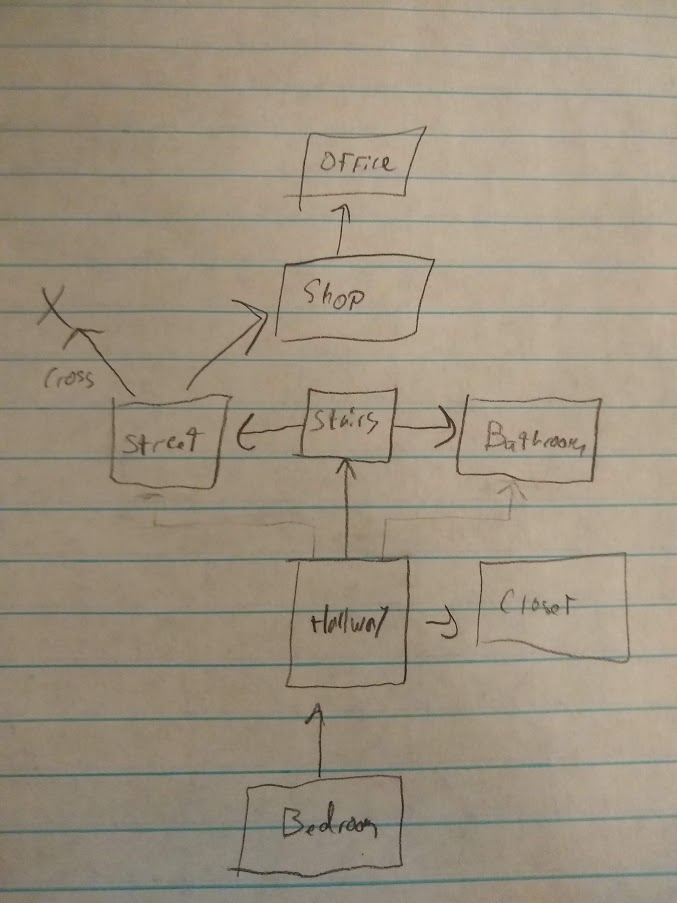 Office
Shop
X
Cross
Street
Stairs
Bathroom
Hallway
Closet
Bedroom